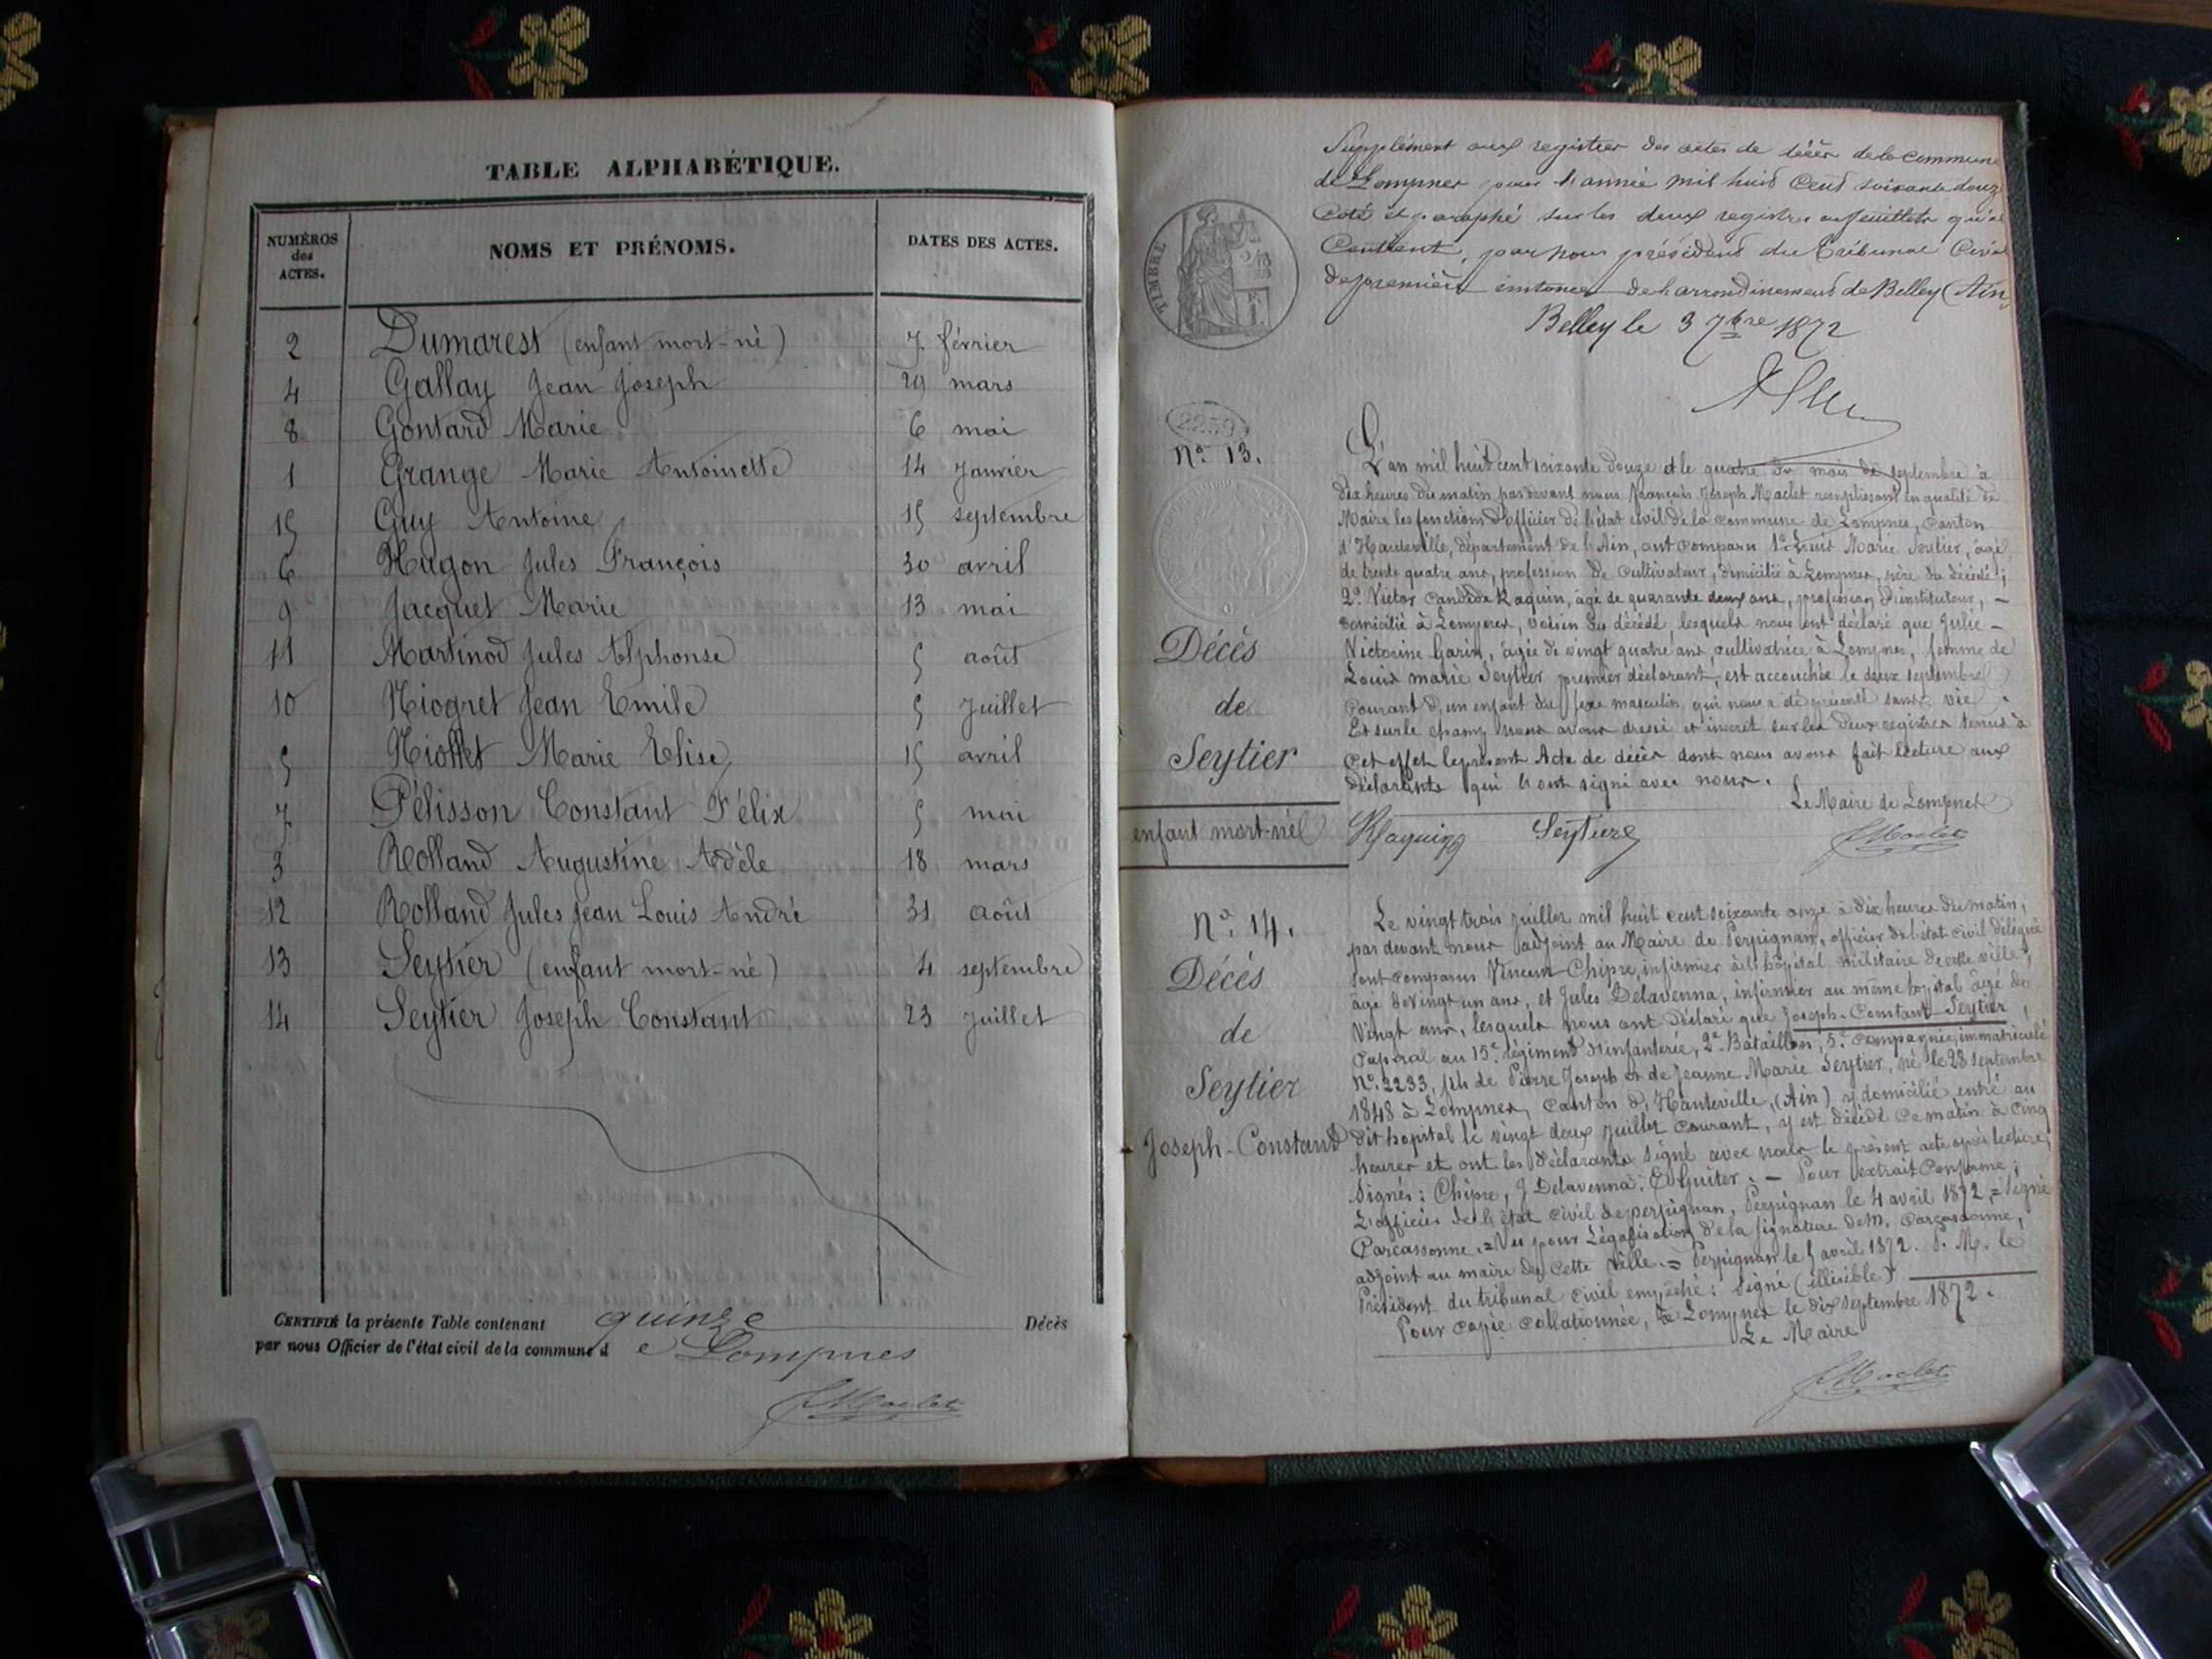 TABLE ALPHABÉTIQUE.
NUMÉROS
des
ACTES.
NOMS ET PRÉNOMS.
DATES DES ACTES.
2 Dumarest (enfant mort-né) 7 février
4 Gallay Jean Joseph 29 mars
8 Gontard Marie 6 mai
1 Grange Marie Antoinette 14 Janvier
15 Guy Antoine 15 septembre
6 Hugon Jules François 30 avril
9 Jacquet Marie 13 mai
11 Martinod Jules Alphonse 5 août
10 Niogret Jean Emile 5 Juillet
5 Niollet Marie Elise 15 avril
7 Pélisson Constant Félix 5 mai
3 Rolland Augustine Adèle 18 mars
12 Rolland Jules Jean Louis André 31 août
13 Seytier (enfant mort-né) 4 septembre
14 Seytier Joseph Constant 23 Juillet
CERTIFIÉ la présente Table contenant quinze Décès
par nous Officier de l'état civil de la commune d e Lompnes
JMaclet
Supplément aux registres des actes de décès de la commune
de Lompnes pour l'année mil huit cent soixante douze
Coté et paraphé sur les deux registres feuillets qu'il
Contient, par nous président du Tribunal Civil
de première instance de l'arrondissement de Belley (Ain)
Belley le 3 7bre 1872
TIMBRE
2259
N° 13.
Décès
de
Seytier
enfant mort-né
L'an mil huit cent soixante douze et le quatre du mois de septembre à
dix heures du matin, pardevant nous François Joseph Maclet remplissant en qualité de
Maire les fonctions d'officier de l'état civil de la commune de Lompnes, Canton
d'Hauteville, département de l'Ain, ont comparu 1° Louis Marie Seytier, âgé
de trente quatre ans, profession de cultivateur, domicilié à Lompnes, père du décédé;
2° Victor Candide Raquin, âgé de quarante deux ans, profession d'instituteur, —
domicilié à Lompnes, voisin du décédé, lesquels nous ont déclaré que Julie -
Victorine Garin, âgée de vingt quatre ans, cultivatrice à Lompnes, femme de
Louis marie Seytier premier déclarant, est accouchée le deux septembre
courant d'un enfant du sexe masculin, qui nous a été présenté sans vie.
Et sur le champ nous avons dressé et inscrit sur les deux registres tenus à
cet effet le présent Acte de décès dont nous avons fait lecture aux
déclarants qui l'ont signé avec nous.
Le Maire de Lompnes
Raquin Seytier JMaclet
N° 14.
Décès
de
Seytier
Joseph-Constant
Le vingt trois juillet mil huit cent soixante onze à dix heures du matin,
par devant nous adjoint au Maire de Perpignan, officier de l'état civil délégué
sont comparus Vincent Chipre, infirmier à l'hôpital militaire de cette ville,
âgé de vingt un ans, et Jules Delavenna, infirmier au même hôpital âgé de
vingt ans, lesquels nous ont déclaré que Joseph-Constant Seytier,
caporal au 15e régiment d'infanterie, 2e Bataillon, 5e compagnie, immatriculé
N° 2233, fils de Pierre Joseph et de Jeanne Marie Seytier, né le 28 septembre
1848 à Lompnes, canton d'Hauteville, (Ain) y domicilié, entré au
dit hopital le vingt deux juillet courant, y est décédé ce matin à cinq
heures et ont les déclarants signé avec nous le présent acte après lecture;
Signés: Chipre, J Delavenna, Ed Guiter. - Pour extrait Conforme;
L'officier de l'état civil de perpignan, Perpignan le 4 avril 1872 = signé
Carcassonne. = Vu pour Légalisation de la signature de M. Carcassonne,
adjoint au maire de cette Ville = Perpignan le 5 avril 1872. P. M. le
Président du tribunal civil empêché: Signé (illisible)
Pour copie collationnée, à Lompnes le dix septembre 1872.
Le Maire
JMaclet